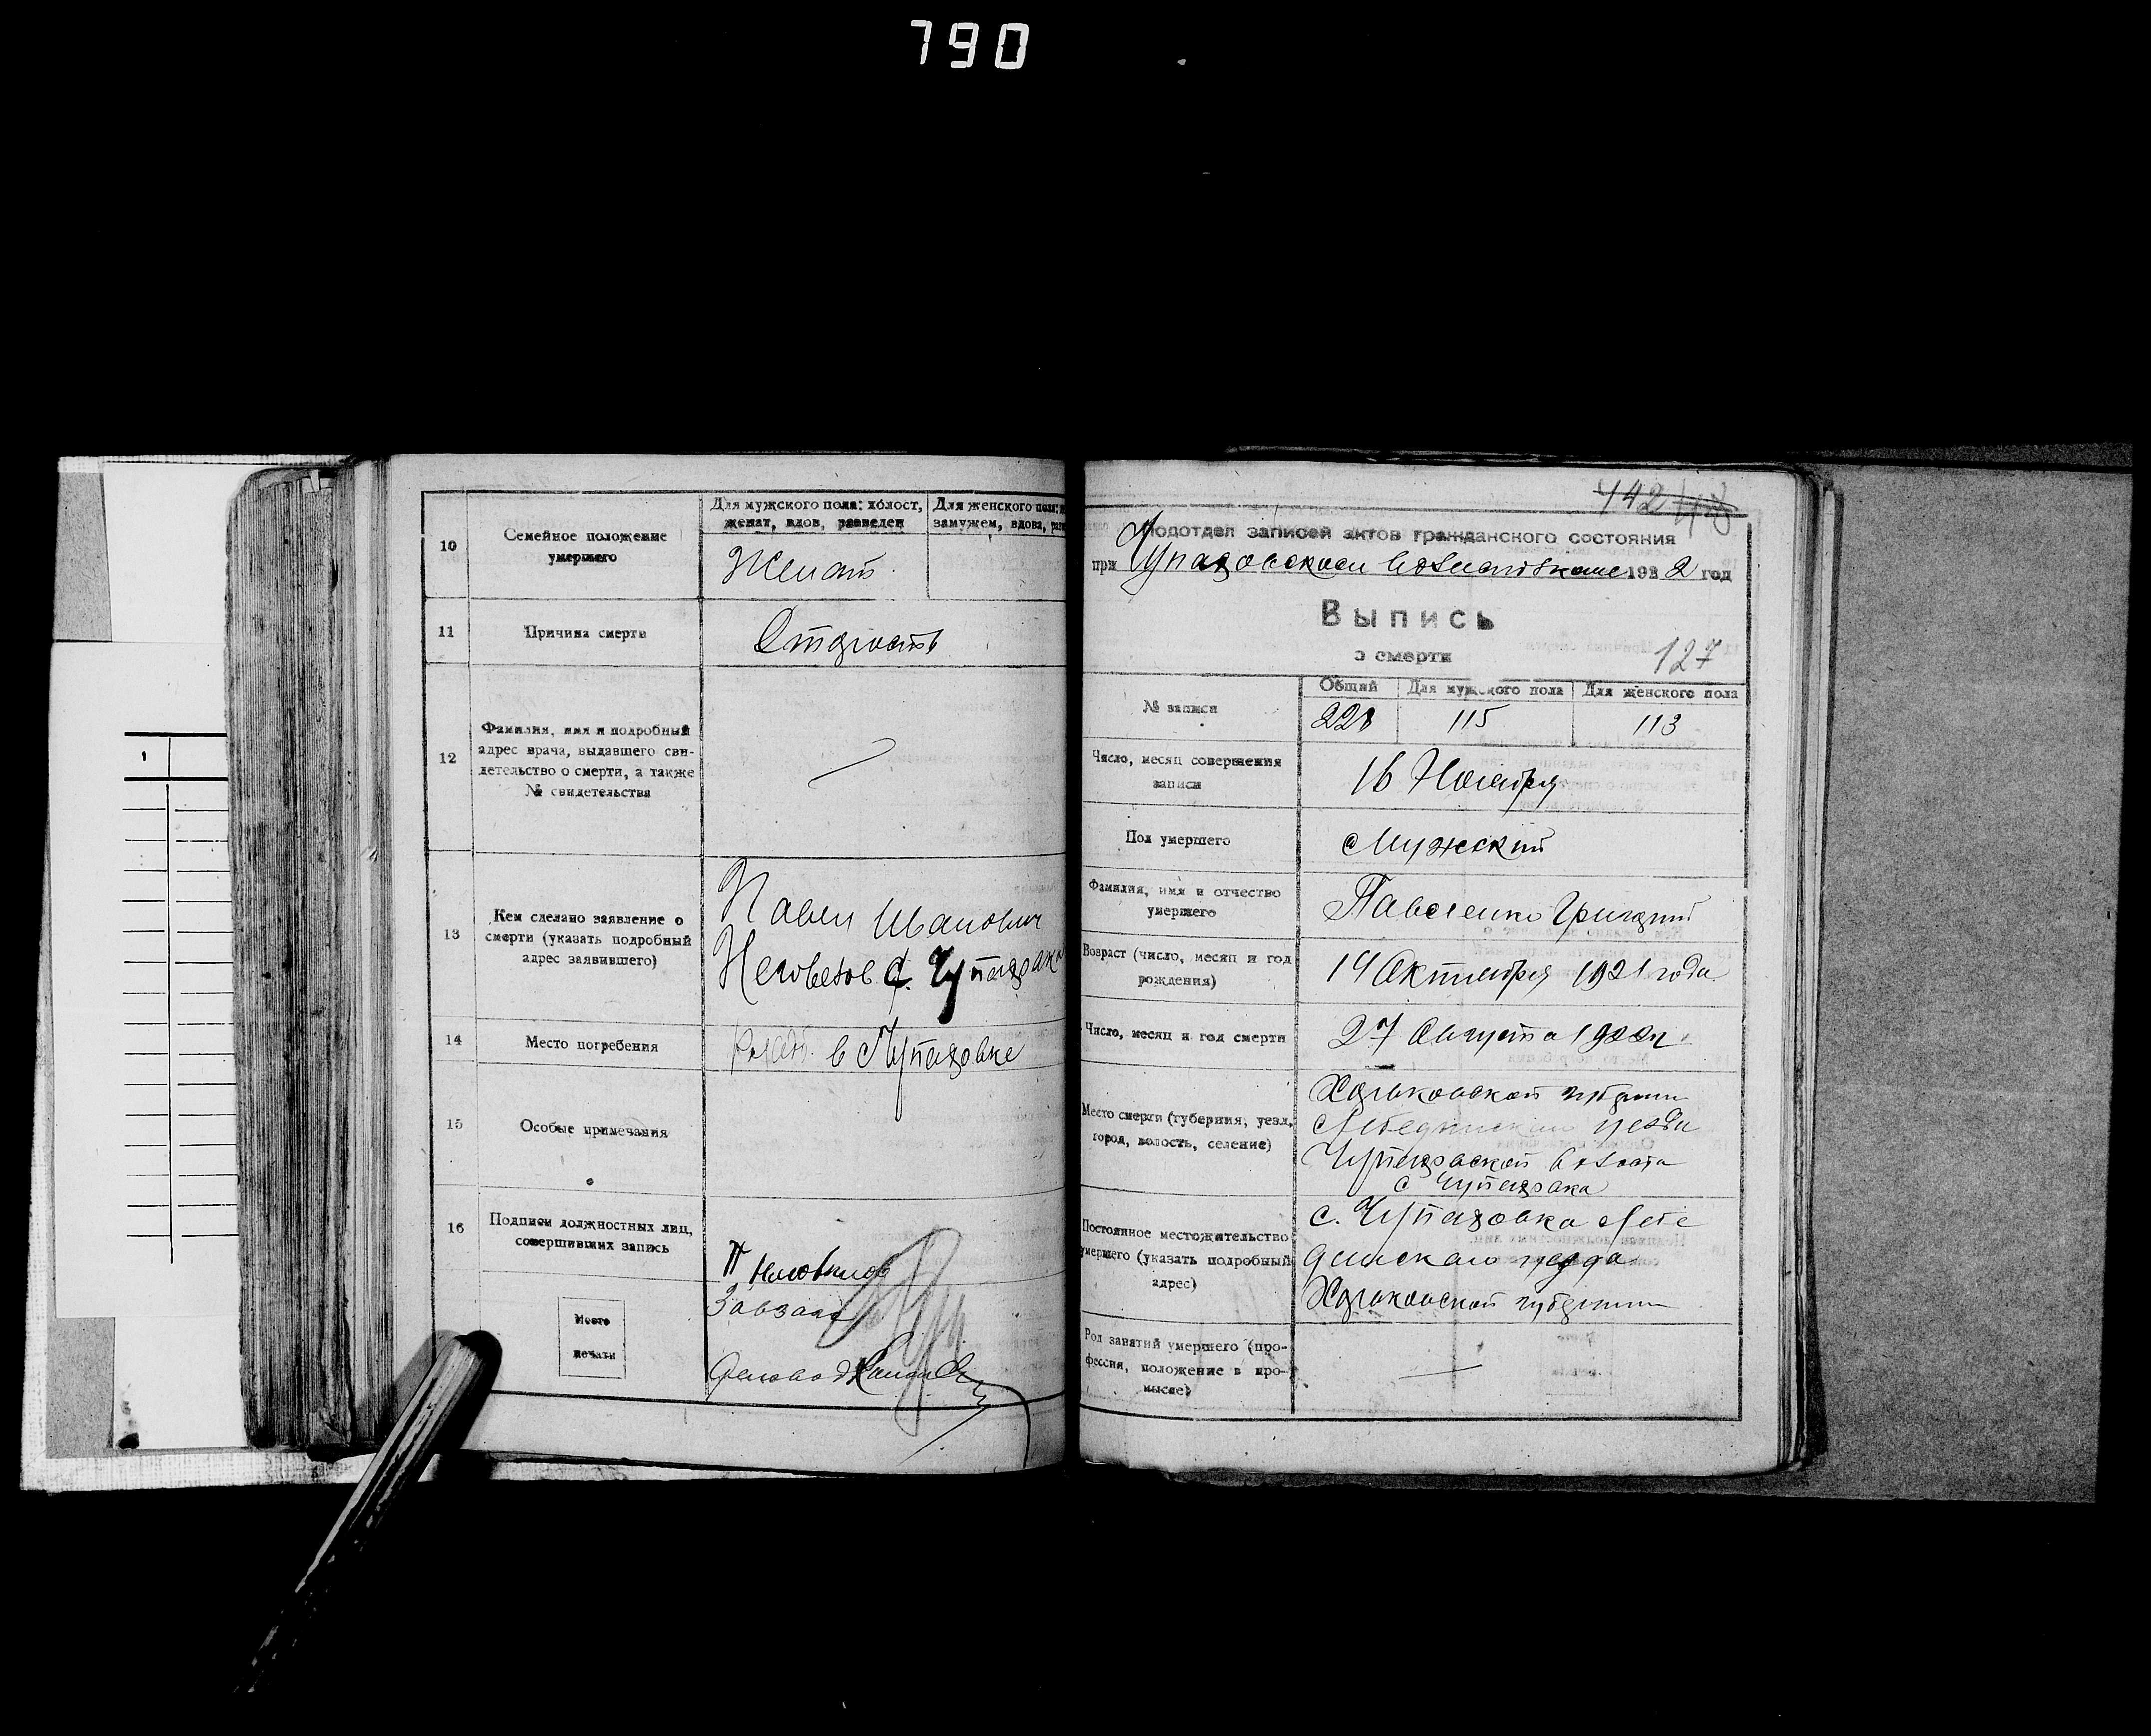 790
10
Семейное положение
умершего
Для мужского пола: холост,
женат, вдов, разведен
Для женского пола:
замужем, вдова,
Женат.
11
Причина смерти
Старость
12
Фамилия, имя и подробный
адрес врача, выдавшего сви-
детельство о смерти, а также
№ свидетельства
13
Кем сделано заявление о
смерти (указать подробный
адрес заявившего)
Павел Иванович
с. Чупаховка
14
Место погребения
в Чупаховке
15
Особые примечания
16
Подписи должностных лиц,
совершивших запись
Завзагс
Место
печати
Деловод
442
Подотдел записей актов гражданского состояния
при Чупаховском волисполкоме 1922 год
Выпись
о смерти
127
№ записи
Общий
Для мужского пола
Для женского пола
228
115
113
Число, месяц совершения
записи
16 Ноября
Пол умершего
Мужский
Фамилия, имя и отчество
умершего
Павленко Григорий
Возраст (число, месяц и год
рождения)
14 Октября 1921 года
Число, месяц и год смерти
27 Августа 1922 г.
Место смерти (губерния, уезд,
город, волость, селение)
Харьковской губернии
Лебединскаго уезда
Чупаховской волости
с Чупаховка
Постоянное местожительство
умершего (указать подробный
адрес)
с. Чупаховка Лебе
динскаго уезда
Харьковской губернии
Род занятий умершего (про-
фессия, положение в про-
мысле)